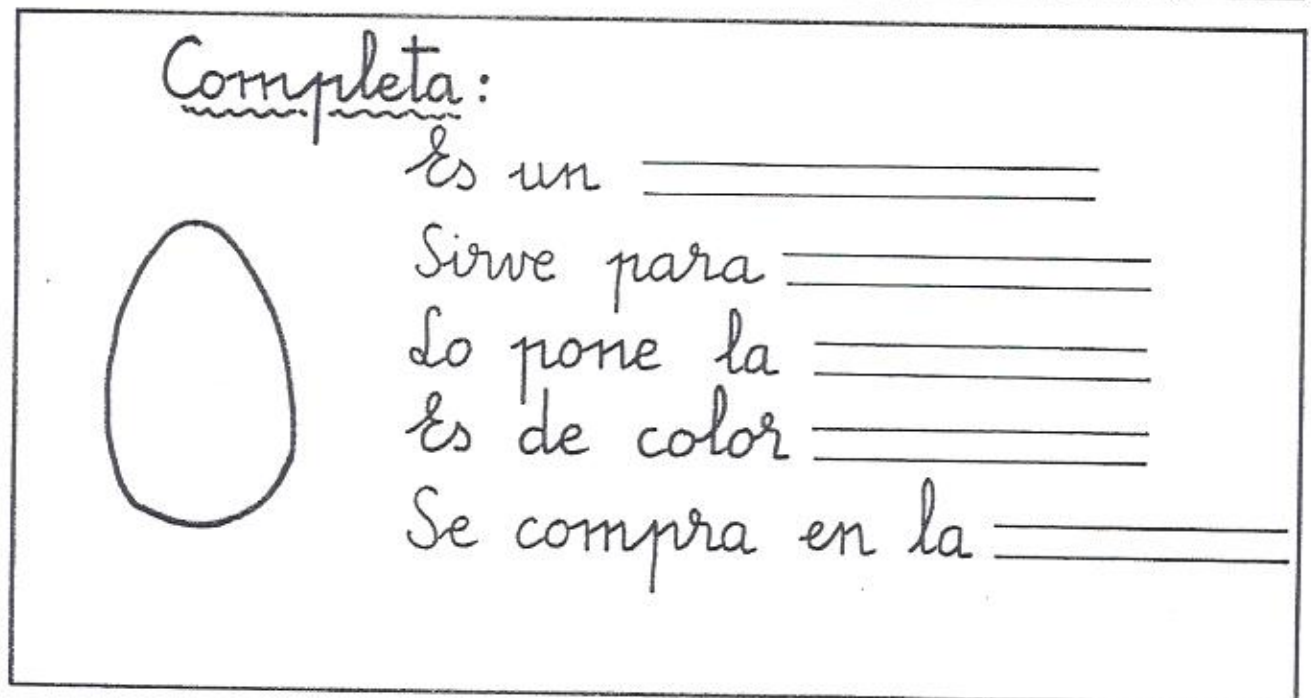 Completa:
Es un
Sirve para
Lo pone la
Es de color
Se compra en la